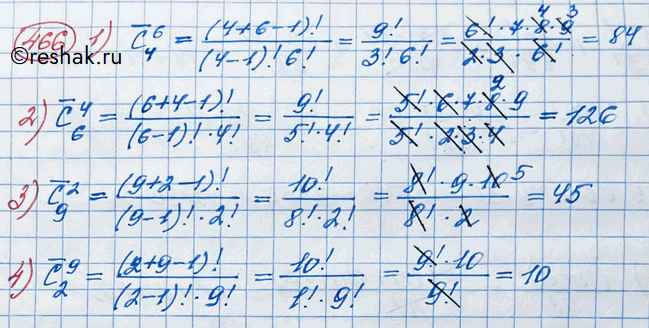 466 1) C̅₄⁶ = (4+6-1)! / (4-1)! 6! = 9! / 3! 6! = 6! · 7 · 8⁴ · 9³ / 2 · 3 · 6! = 84
©reshak.ru
2) C̅₆⁴ = (6+4-1)! / (6-1)! · 4! = 9! / 5! · 4! = 5! · 6 · 7 · 8² · 9 / 5! · 2 · 3 · 4 = 126
3) C̅₉² = (9+2-1)! / (9-1)! · 2! = 10! / 8! · 2! = 8! · 9 · 10⁵ / 8! · 2 = 45
4) C̅₂⁹ = (2+9-1)! / (2-1)! · 9! = 10! / 1! · 9! = 9! · 10 / 9! = 10